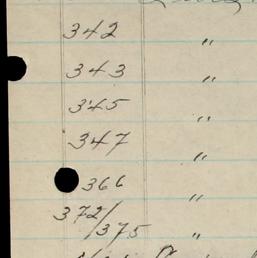 342 "
343 "
345 "
347 "
366 "
372/
/375 "